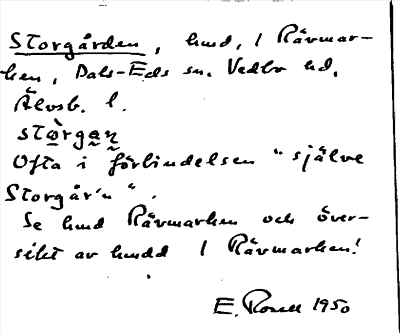 Storgården, hmd, i Rävmar-
ken, Dals-Eds sn. Vedbo hd,
Älvsb. l.
stòrgaṉ
Ofta i förbindelsen "själve
Storgår'n".
Se hmd Rävmarken och över-
sikt av hmdd i Rävmarken!
E. Rosell 1950